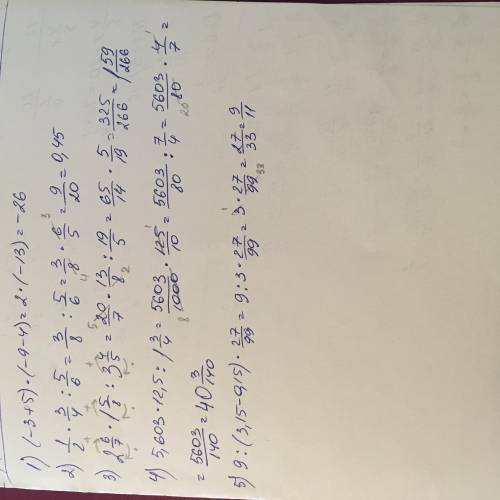 1) (-3+5)·(-9-4)=2·(-13)=-26
2) 1/2 · 3/4 : 5/6 = 3/8 : 5/6 = 3/8 · 6/5 = 9/20 = 0,45
3) 2 6/7 · 1 5/8 : 3 4/5 = 20/7 · 13/8 : 19/5 = 65/14 · 5/19 = 325/266 = 1 59/266
4) 5,603·12,5 : 1 3/4 = 5603/1000 · 125/10 = 5603/80 : 7/4 = 5603/80 · 4/7 =
= 5603/140 = 40 3/140
5) 9:(3,15-0,15)· 27/99 = 9:3· 27/99 = 3· 27/99 = 27/33 = 9/11